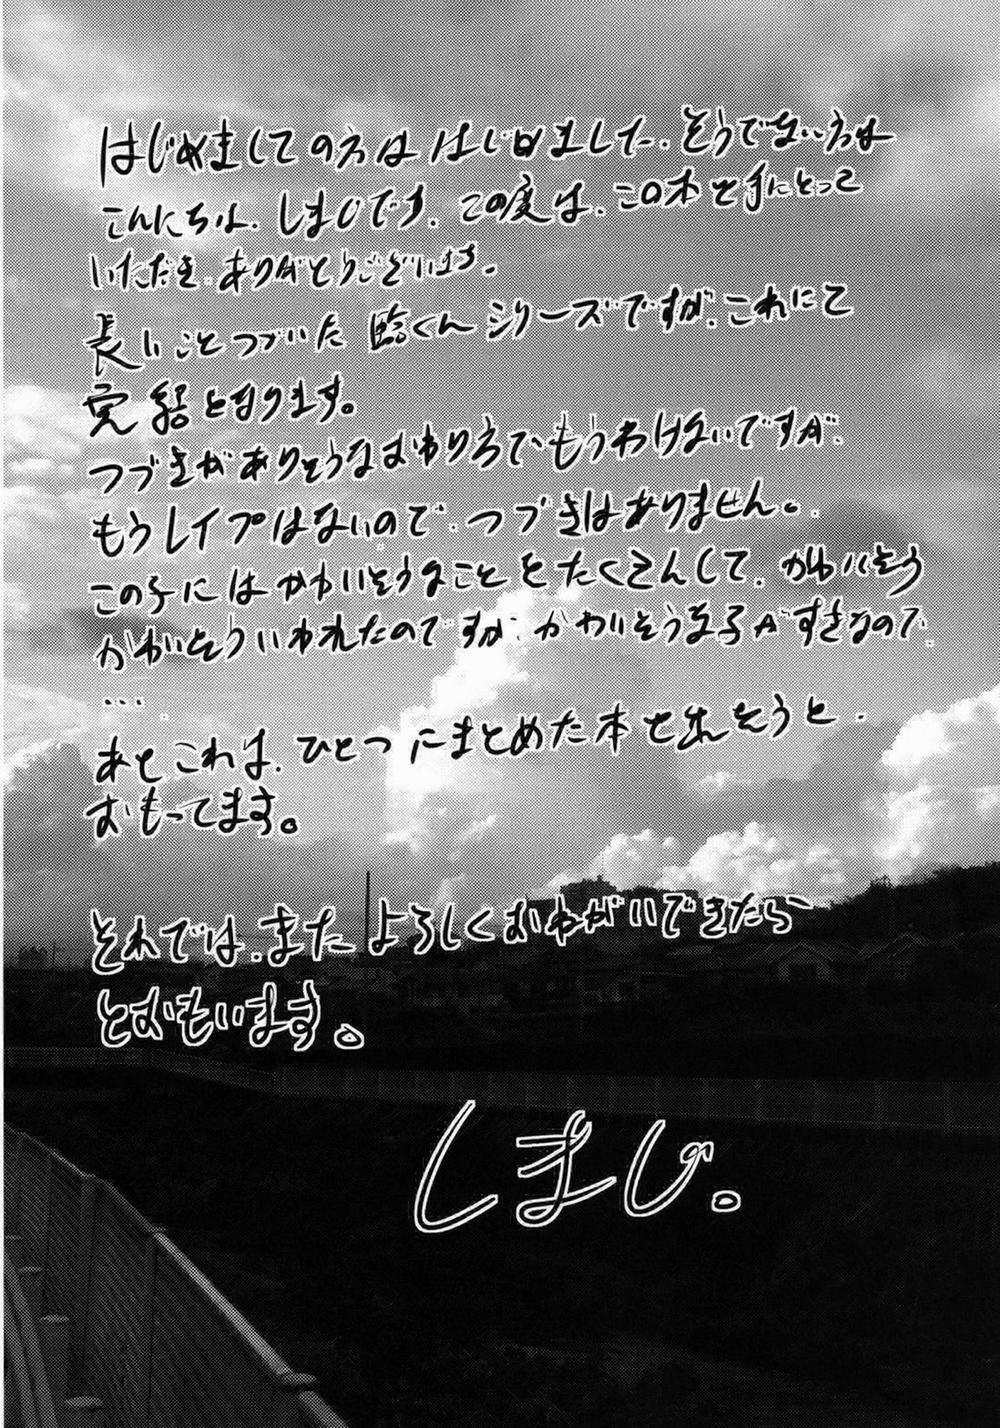 はじめましての方は はじめました. そうでない方は
こんにちは. しまじです. この度は. この本を手にとって
いただき. ありがとうございます.
長いことつづいた 臨くん シリーズですが. これにて
完結となります。
つづきがありそうなおわり方で. もうわけないですが.
もうレイプはないので. つづきはありません。
この子にはかわいそうなことをたくさんして. かわいそう
かわいそういわれたのですが. かわいそうな子がすきなので.
...
あとこれは. ひとつにまとめた本を出そうと.
おもってます。
それでは. また よろしくおねがいできたら
とおもいます。
しまじ。